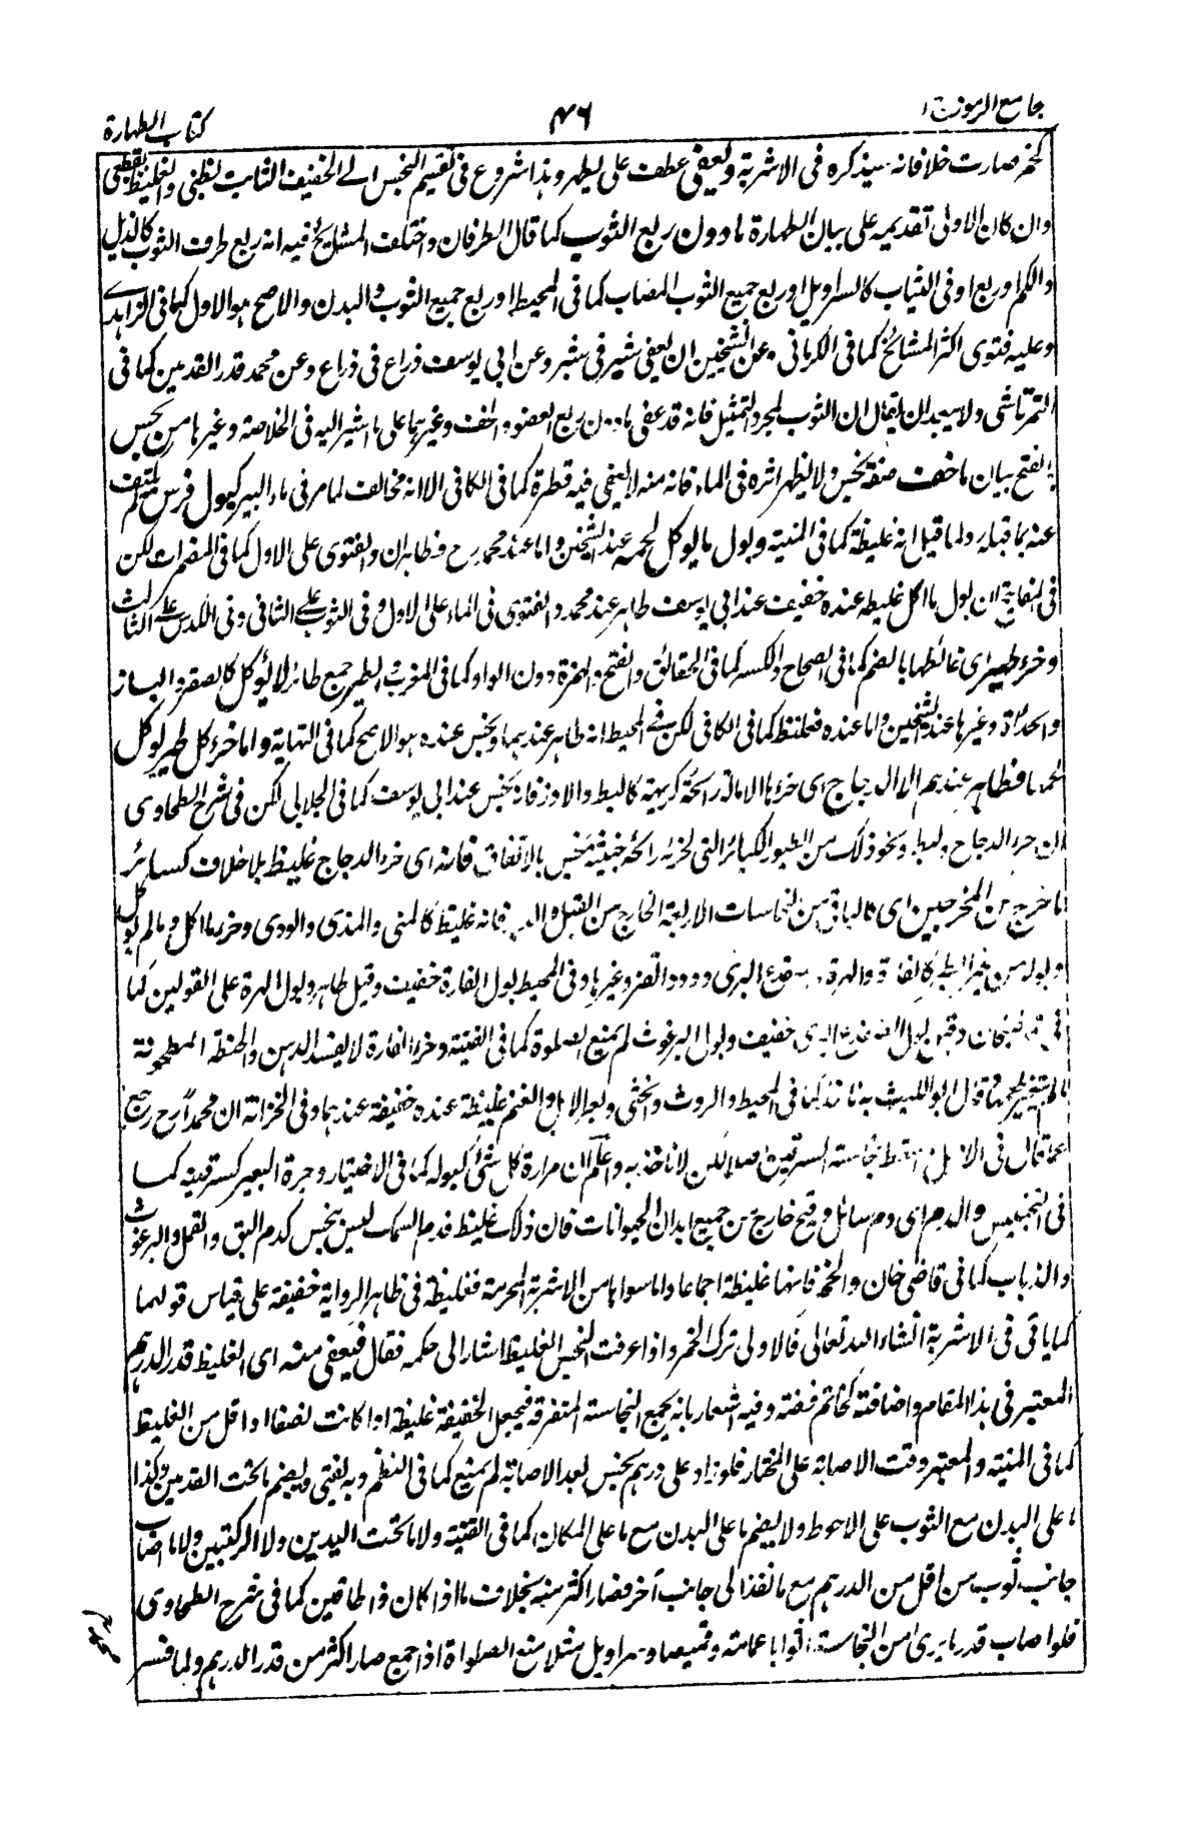 جامع الرموز ج ۱
۴۶
کتاب الطهارة
کخمر صارت خلا فانه سيذكره فى الاشربة ويعفى عطف على يطهر وهذا شروع فى تقسيم النجس الے الخفيف الثابت بظنى والغليظ بقطعى
وان كان الاولى تقديمه على بيان الطهارة ما دون ربع الثوب كما قال الطرفان واختلف المشايخ فيه انه ربع طرف الثوب كالذيل
والكم او ربع اوفى الثياب كالسراويل او ربع جميع الثوب المصاب كما فى المحيط او ربع جميع الثوب والبدن والاصح هو الاول كما فى الزاهدے
وعليه فتوى اكثر المشائخ كما فى الكرمانى وعن الشيخين ان يعفى شبر فى شبر وعن ابى يوسف ذراع فى ذراع وعن محمد قدر القدمين كما فى
التمرتاشى ولا يبعد ان يقال ان الثوب لمجرد التمثيل فانه قد عفى ما دون ربع العضو والخف وغيرهما على ما اشير اليه فى الخلاصة وغيرها من نجس
بالفتح بيان ما خف صفة نجس ولا يظهر اثره فى الماء فانه منه لا يعفى فيه قطرة كما فى الكافى الا انه مخالف لما مر فى ماء البير كبول فرس لم
عنه بما قبله ولما قيل انه غليظة كما فى المنية وبول ما يوكل لحمه عند الشيخين واما عند محمد رح فطاهران والفتوى على الاول كما فى المضمرات لكن
فى ان بول ما اكل غليظ عنده خفيف عند ابى يوسف طاهر عند محمد والفتوى فى الماء على الاول وفى الثوب على الثانى وفى الكدس على الثالث
وخرء طير اى غائطها بالضم كما فى الصحاح والكسر كما فى الحقائق والفتح والهمزة دون الواو كما فى المغرب والطير جمع طائر لا يؤكل كالصقر والباز
والحدأة وغيرها عند الشيخين واما عنده فغلظ كما فى الكافى لكن فے المحيط انه طاهر عندهما ونجس عنده هو الاصح كما فى النهاية واما خرء كل طير يوكل
لحمه فطاهر عندهم الا الدجاج اى خرء ما لامالة رائحة كريهة كالبط والاوز فانه نجس عند ابى يوسف كما فى الجلابى لكن فى شرح الطحاوى
ان خرء الدجاج والبط ونحو ذلك من الطيور الكبائر التى لخرئه رائحة خبيثة نجس بالاتفاق فانه اى خرء الدجاج غليظ بلا خلاف كسائر
ما خرج من المخرجين اى كالباقى من النجاسات الاربعة الخارج من القبل والدبر فانه غليظ كالمنى والمذى والودى وخرء ما اكل وما لم يوكل
وبوله من غير كالفارة والهرة وضفدع البرى ودود القز وغيرها وفى المحيط بول الفارة خفيف وقيل طاهر وبول الهرة على القولين كما
فى وقيل بول الضفدع البرى خفيف وبول البرغوث لم يمنع الصلوة كما فى القنية وخرء الفارة لا يفسد الدهن والحنطة المطحونة
ما لم يتغير طعمها قال ابو الليث به ناخذ كما فى المحيط والروث والخثى وبعر الابل والغنم غليظة عنده خفيفة عندهما وفى الخزانة ان محمدا رح رجع
عما قال فى نجاسة السرقين لكن لا ناخذ به واعلم ان مرارة كل شئ كبوله كما فى الاختيار وجرة البعير كسرقينه كما
فى التجنيس والدم اى دم سائل وقيح خارج من جميع ابدان الحيوانات فان ذلك غليظ فدم السمك ليس بنجس كدم البق والقمل والبرغوث
والذباب كما فى قاضى خان والخمر فانها غليظة اجماعا واما سواها من الاشربة المحرمة فغليظة فى ظاهر الرواية خفيفة على قياس قولهما
كما ياتى فى الاشربة انشاء الله تعالى فالاولى ترك الخمر واذا عرفت النجس الغليظ اشار الى حكمه فقال فيعفى منه اى الغليظ قدر الدرهم
المعتبر فى هذا المقام واضافته كخاتم فضة وفيه اشعار بانه يجمع النجاسة المتفرقة فيجعل الخفيفة غليظة اذا كانت نصفا او اقل من الغليظ
كما فى المنية والمعتبر وقت الاصابة على المختار فلو زاد على درهم نجس بعد الاصابة لم يمنع كما فى النظم وبه يفتى ويضم ما تحت القدمين وكذا
ما على البدن مع الثوب على الاحوط ولا يضم ما على البدن مع ما على المكان كما فى القنية ولا ما تحت اليدين ولا الركبتين ولا ما اصاب
جانب ثوب من اقل من الدرهم مع ما نفذ الى جانب آخر فصار اكثر منه بخلاف ما اذا كان ذا طاقين كما فى شرح الطحاوى
فلو اصاب قدر ما يرى من النجاسة اثوابا عمامة وقميصا وسراويل مثلا منع الصلواة اذا جمع صار اكثر من قدر الدرهم ولما فسر